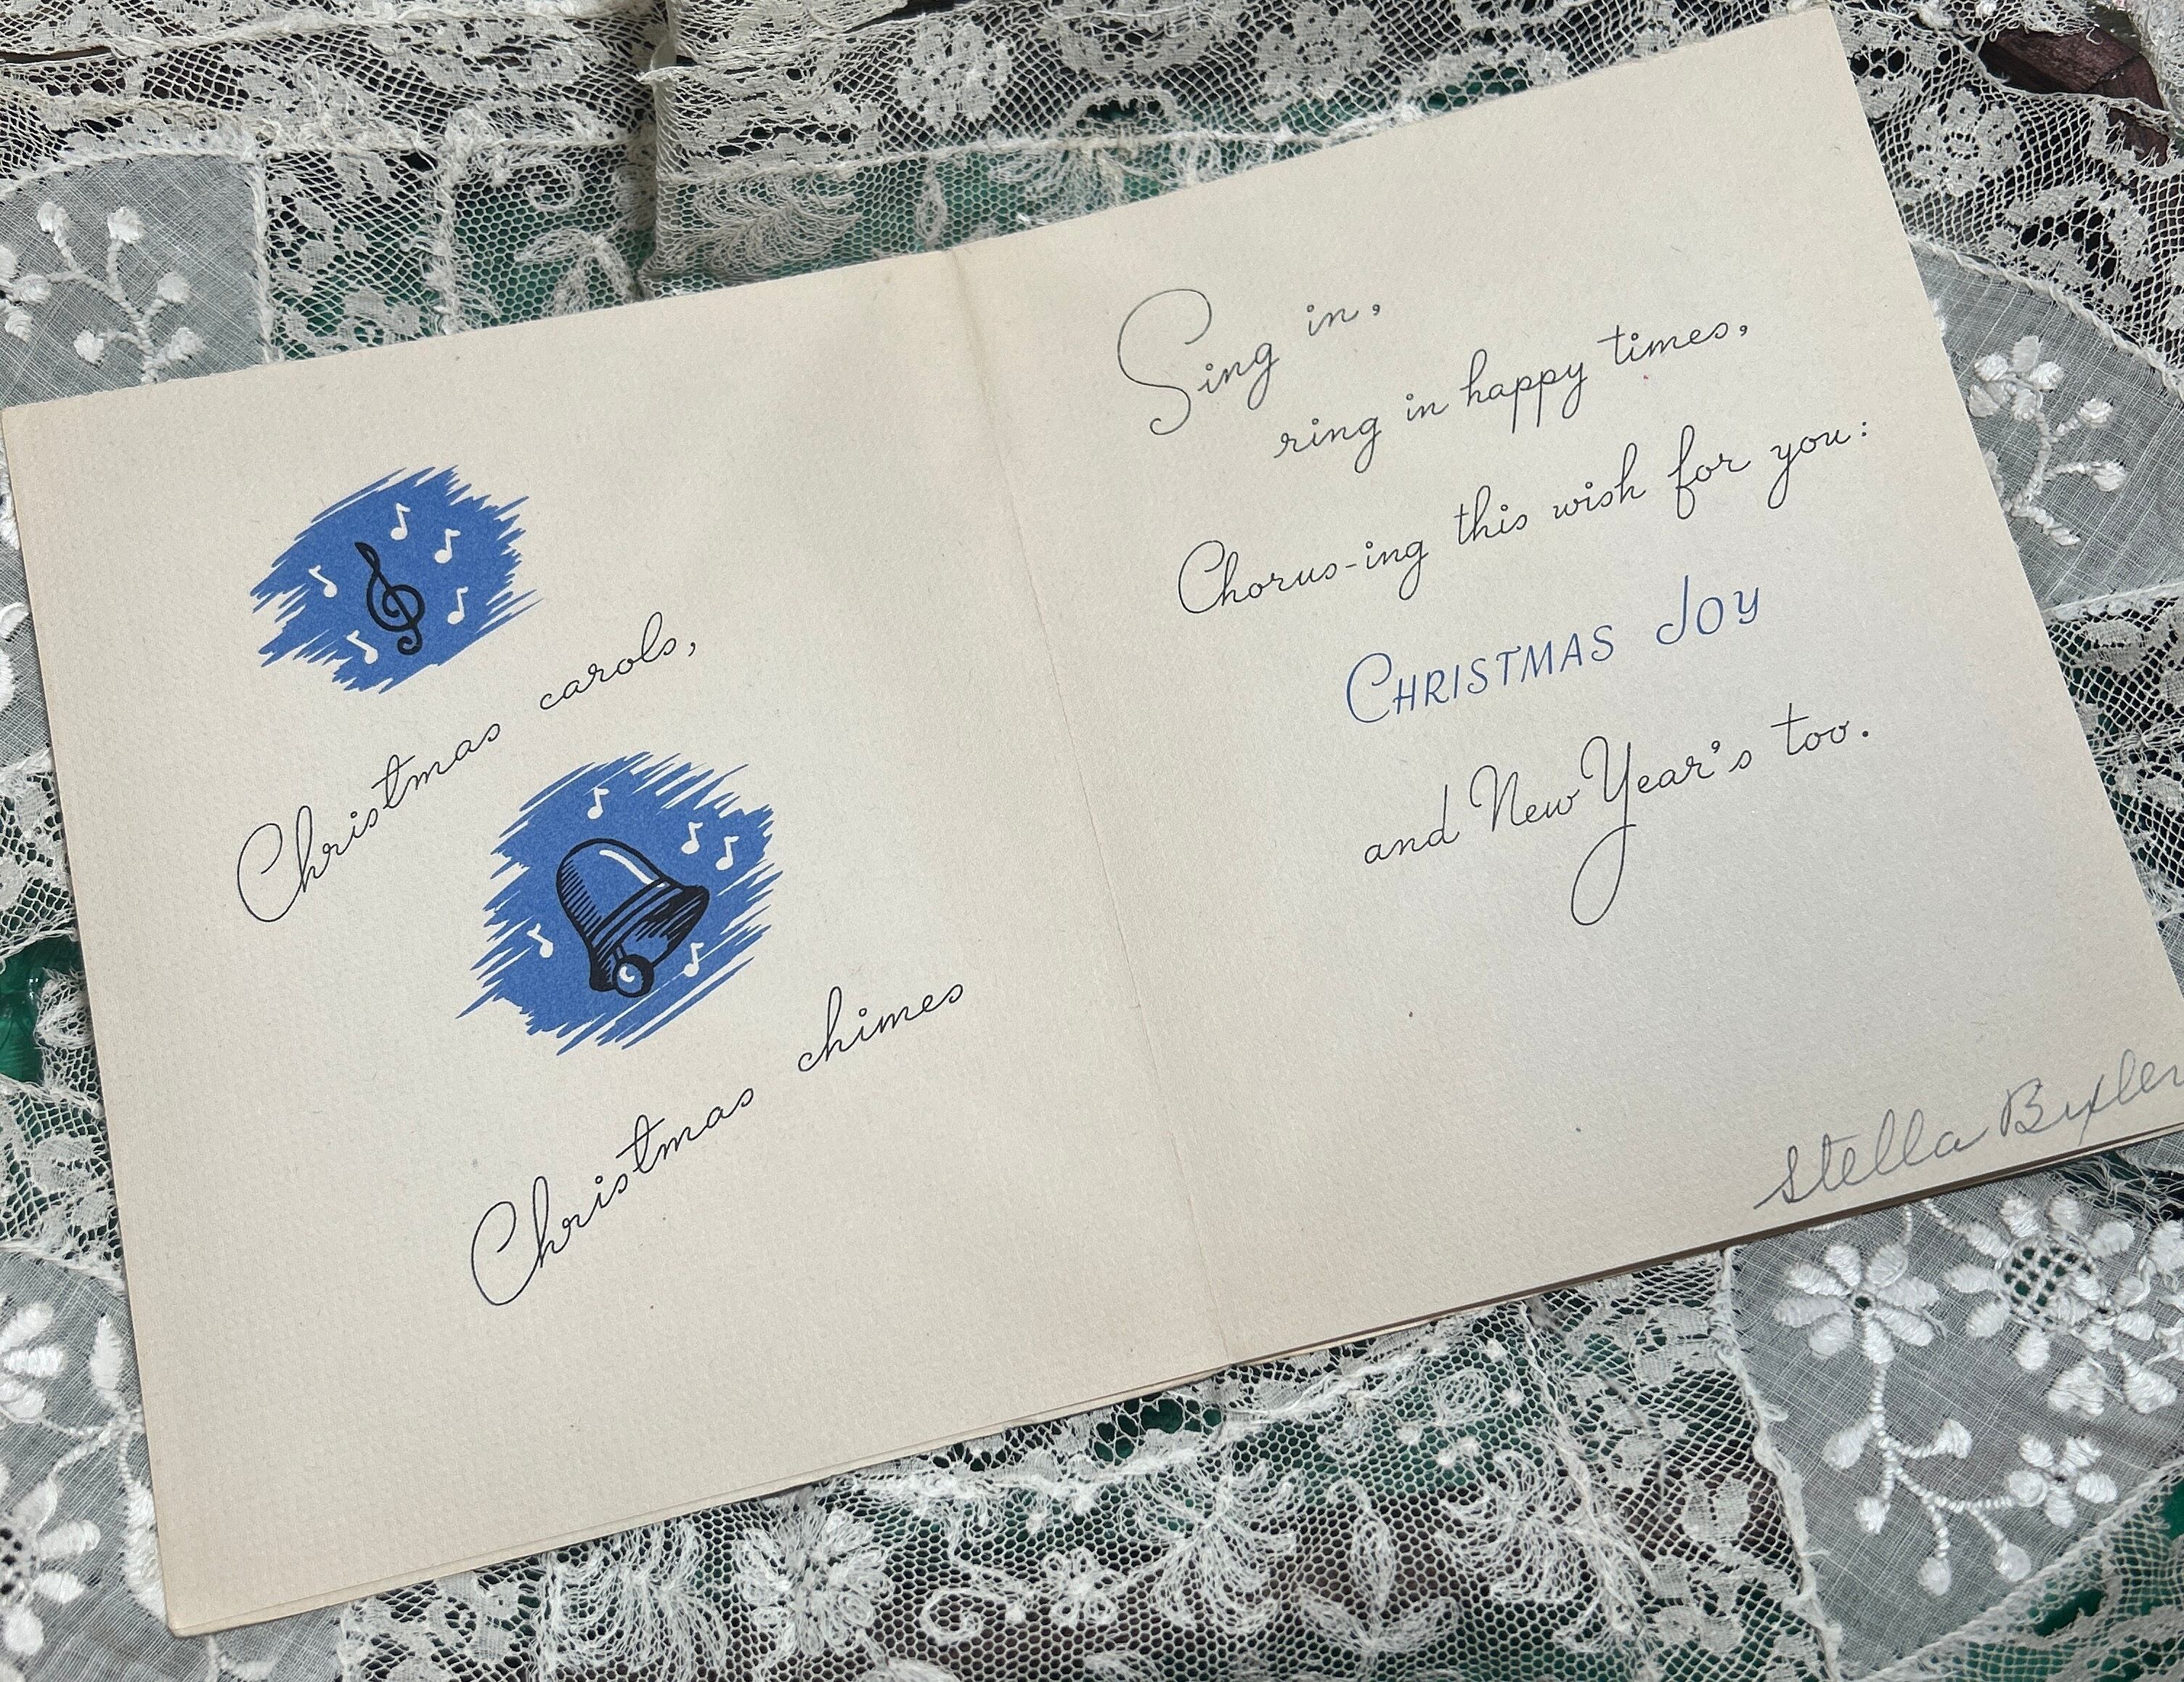 Christmas carols,
Christmas chimes
Sing in,
ring in happy times,
Chorus-ing this wish for you:
CHRISTMAS JOY
and New Year's too.
Stella Bixler